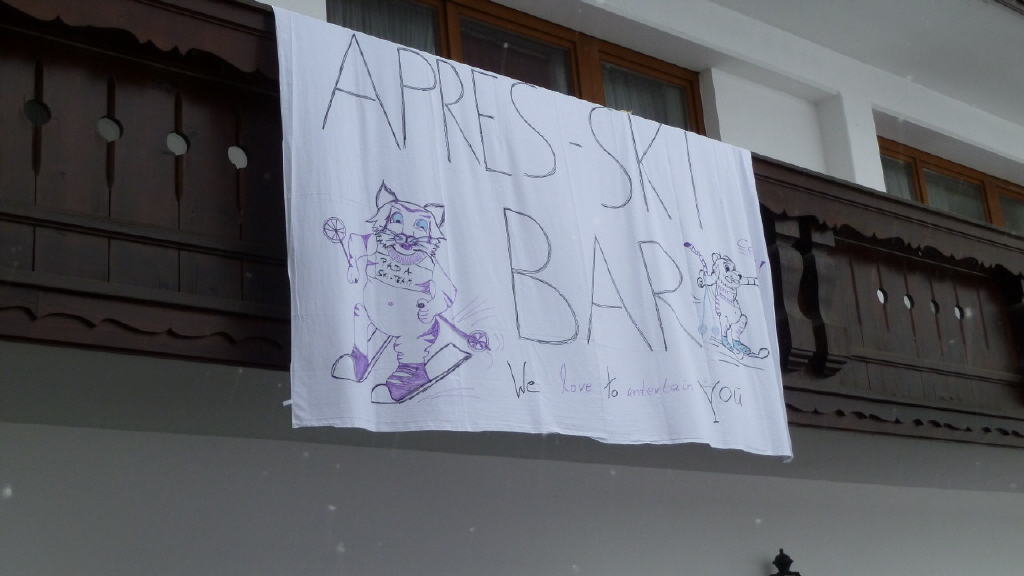 APRES-SKI
BAR
We love to entertain you